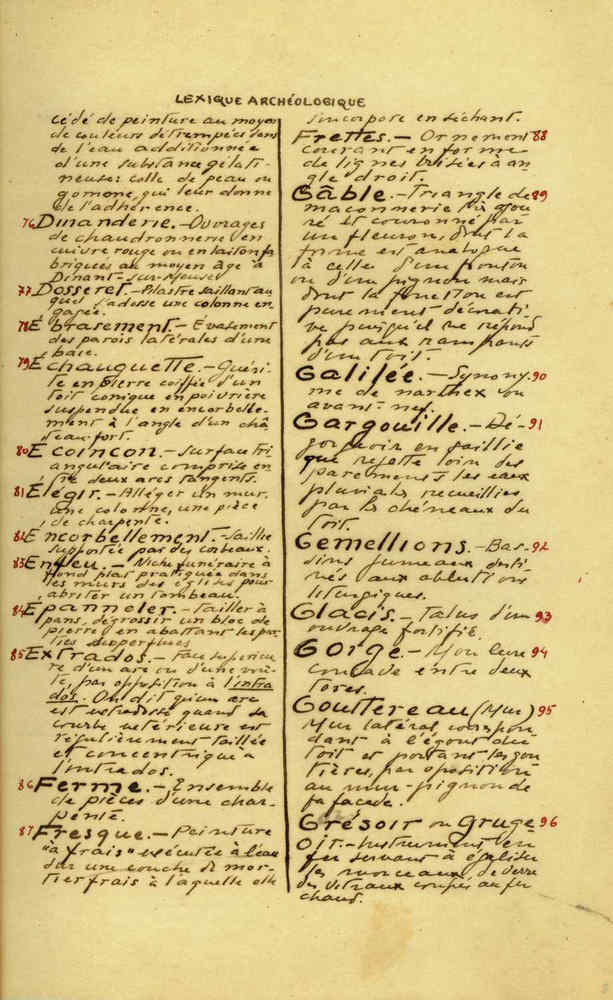 LEXIQUE ARCHÉOLOGIQUE
cédé de peinture au moyen
de couleurs détrempées dans
de l'eau additionnée
d'une substance gélati-
neuse: colle de peau ou
gomme, qui leur donne
de l'adhérence.
76 Dinanderie. – Ouvrages
de chaudronnerie en
cuivre rouge ou en laiton fa
briqués au moyen âge à
Dinant-sur-Meuse
77 Dosseret. – Pilastre saillant au
quel s'adosse une colonne en-
gagée.
78 Ébrasement. – Évasement
des parois latérales d'une
baie.
79 Échauguette. – Guéri-
te en pierre coiffée d'un
toit conique en poivrière
suspendue en encorbelle-
ment à l'angle d'un châ
teau-fort.
80 Écoinçon. – Surface tri
angulaire comprise en
tre deux arcs tangents.
81 Élégir. – Alléger un mur,
une colonne, une pièce
de charpente.
82 Encorbellement. – Saillie
supportée par des corbeaux.
83 Enfeu. – Niche funéraire à
fond plat pratiquée dans
les murs des églises pour
abriter un tombeau.
84 Épanneler. – Tailler à
pans, dégrossir un bloc de
pierre en abattant les par-
ties superflues
85 Extrados. – Face supérieu
re d'un arc ou d'une voû-
te, par opposition à l'intra
dos. On dit qu'un arc
est extradossé quand sa
courbe extérieure est
régulièrement taillée
et concentrique à
l'intrados.
86 Ferme. – Ensemble
de pièces d'une char-
pente.
87 Fresque. – Peinture
"à frais" exécutée à l'eau
sur une couche de mor-
tier frais à laquelle elle
s'incorpore en séchant.
Frettes. – Ornement 88
courant en forme
de lignes brisées à an
gle droit.
Gâble. – Triangle de 89
maçonnerie ajou
ré et couronné par
un fleuron, dont la
forme est analogue
à celle d'un fronton
ou d'un pignon mais
dont la fonction est
purement décorati-
ve puisqu'il ne répond
pas aux rampants
d'un toit.
Galilée. – Synony- 90
me de narthex ou
avant-nef.
Gargouille. – Dé- 91
gorgeoir en saillie
que rejette loin des
parements les eaux
pluviales recueillies
par les chéneaux du
toit.
Gemellions. – Bas- 92
sins jumeaux desti
nés aux ablutions
liturgiques.
Glacis. – Talus d'un 93
ouvrage fortifié.
Gorge. – Moulure 94
concave entre deux
tores.
Gouttereau (Mur) 95
Mur latéral correspon
dant à l'égout du
toit et portant les gou
ttières, par opposition
au mur-pignon de
façade.
Grésoir ou Gruge- 96
oir. – Instrument en
fer servant à égaliser
les morceaux de verre
des vitraux coupés au fer
chaud.